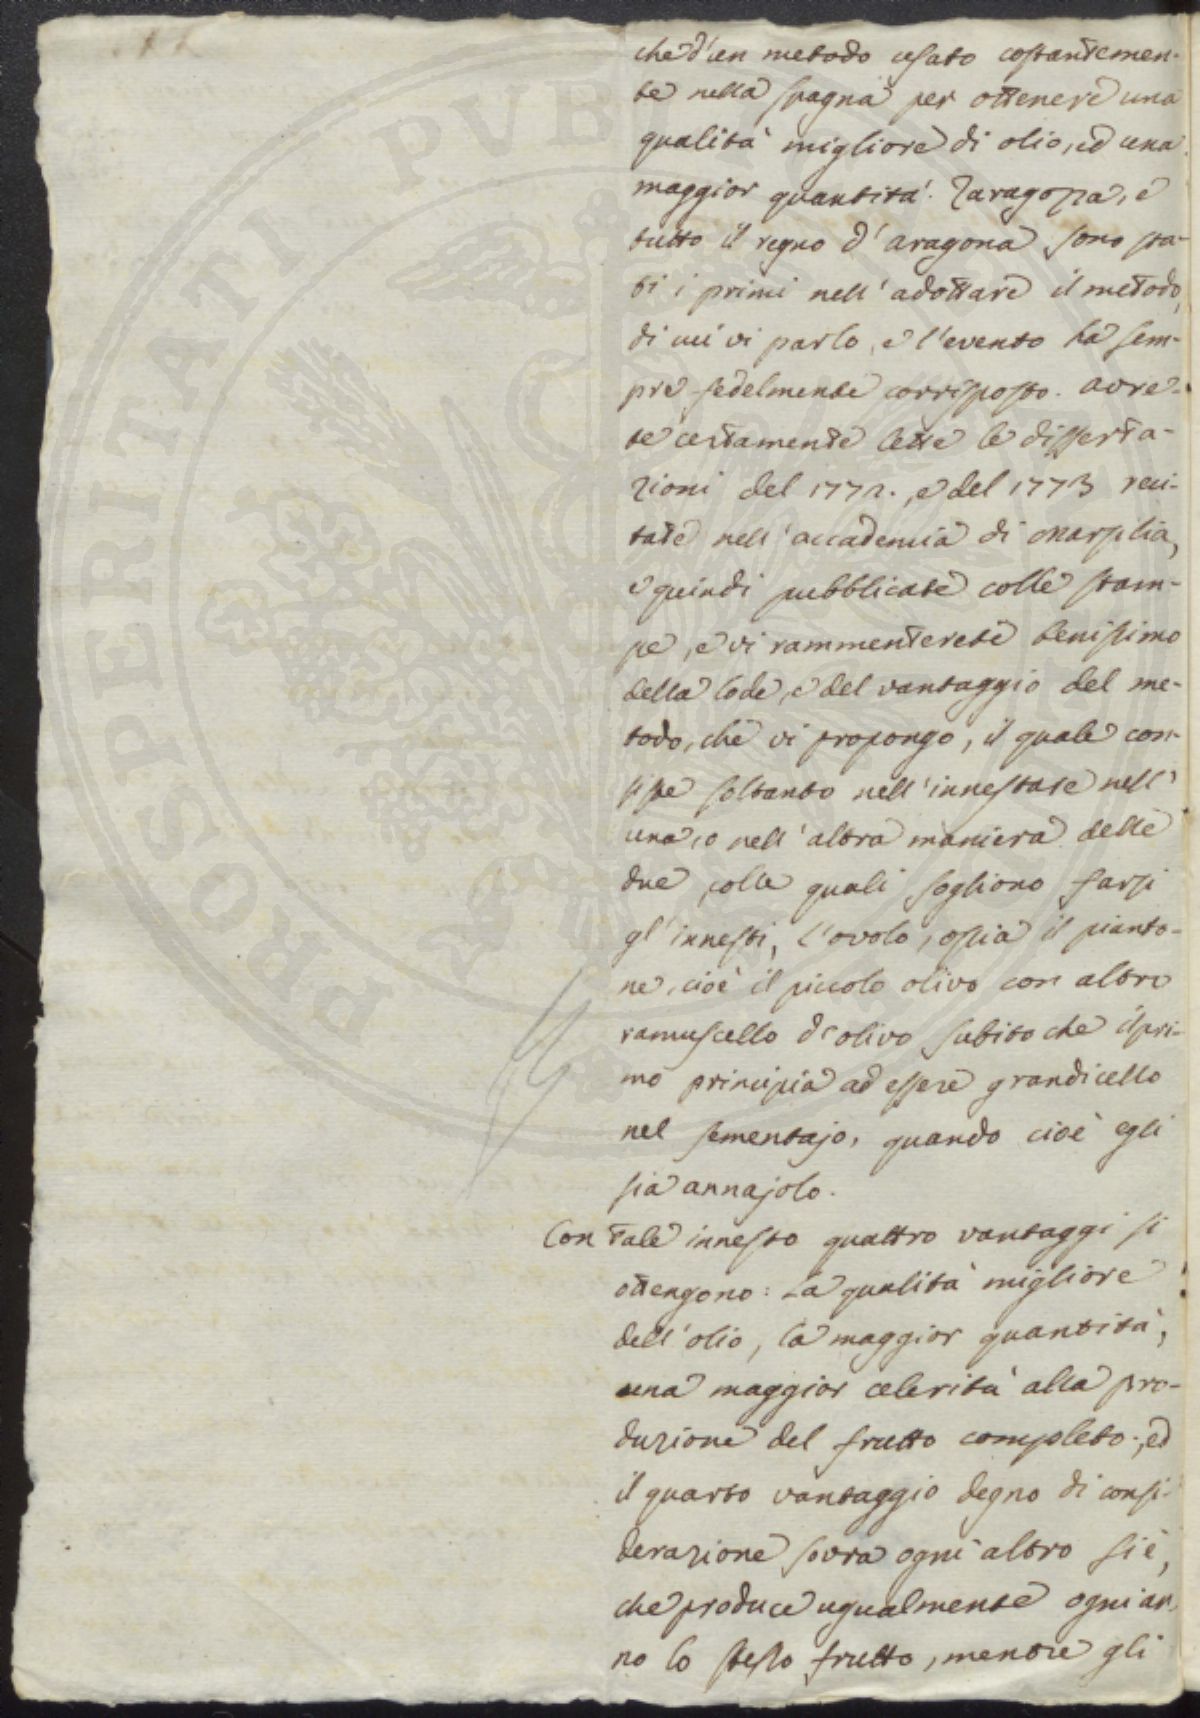 che d'un metodo usato costantemen-
te nella Spagna per ottenere una
qualità migliore di olio, ed una
maggior quantità. Zaragozza, e
tutto il regno d'aragona sono sta-
ti i primi nell'adottare il metodo,
di cui vi parlo, e l'evento ha sem-
pre fedelmente corrisposto. avre-
te certamente lette le disserta-
zioni del 1772., e del 1773 reci-
tate nell'accademia di Marsilia,
e quindi pubblicate colle stam-
pe, e vi rammenterete benissimo
della lode, e del vantaggio del me-
todo, che vi propongo, il quale con-
siste soltanto nell'innestare nell'
una, o nell'altra maniera delle
due, colle quali sogliono farsi
gl'innesti, l'ovolo, ossia il pianto-
ne, cioè il piccolo olivo con altro
ramuscello d'olivo subito che il pri-
mo principia ad essere grandicello
nel sementajo, quando cioè egli
sia annajolo.
Con tale innesto quattro vantaggi si
ottengono: La qualità migliore
dell'olio, la maggior quantità,
una maggior celerità alla pro-
duzione del frutto completo; ed
il quarto vantaggio degno di consi-
derazione sovra ogni altro si è,
che produce ugualmente ogni an-
no lo stesso frutto, mentre gli
PROSPERITATI PVBL